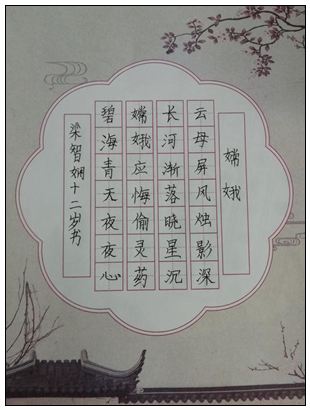 嫦娥
云母屏风烛影深
长河渐落晓星沉
嫦娥应悔偷灵药
碧海青天夜夜心
梁智娴十二岁书